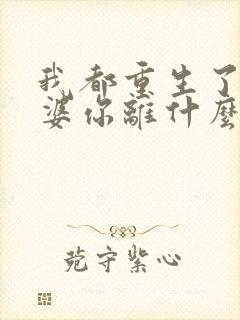 我都重生了
婆你離什麼
苑守紫心